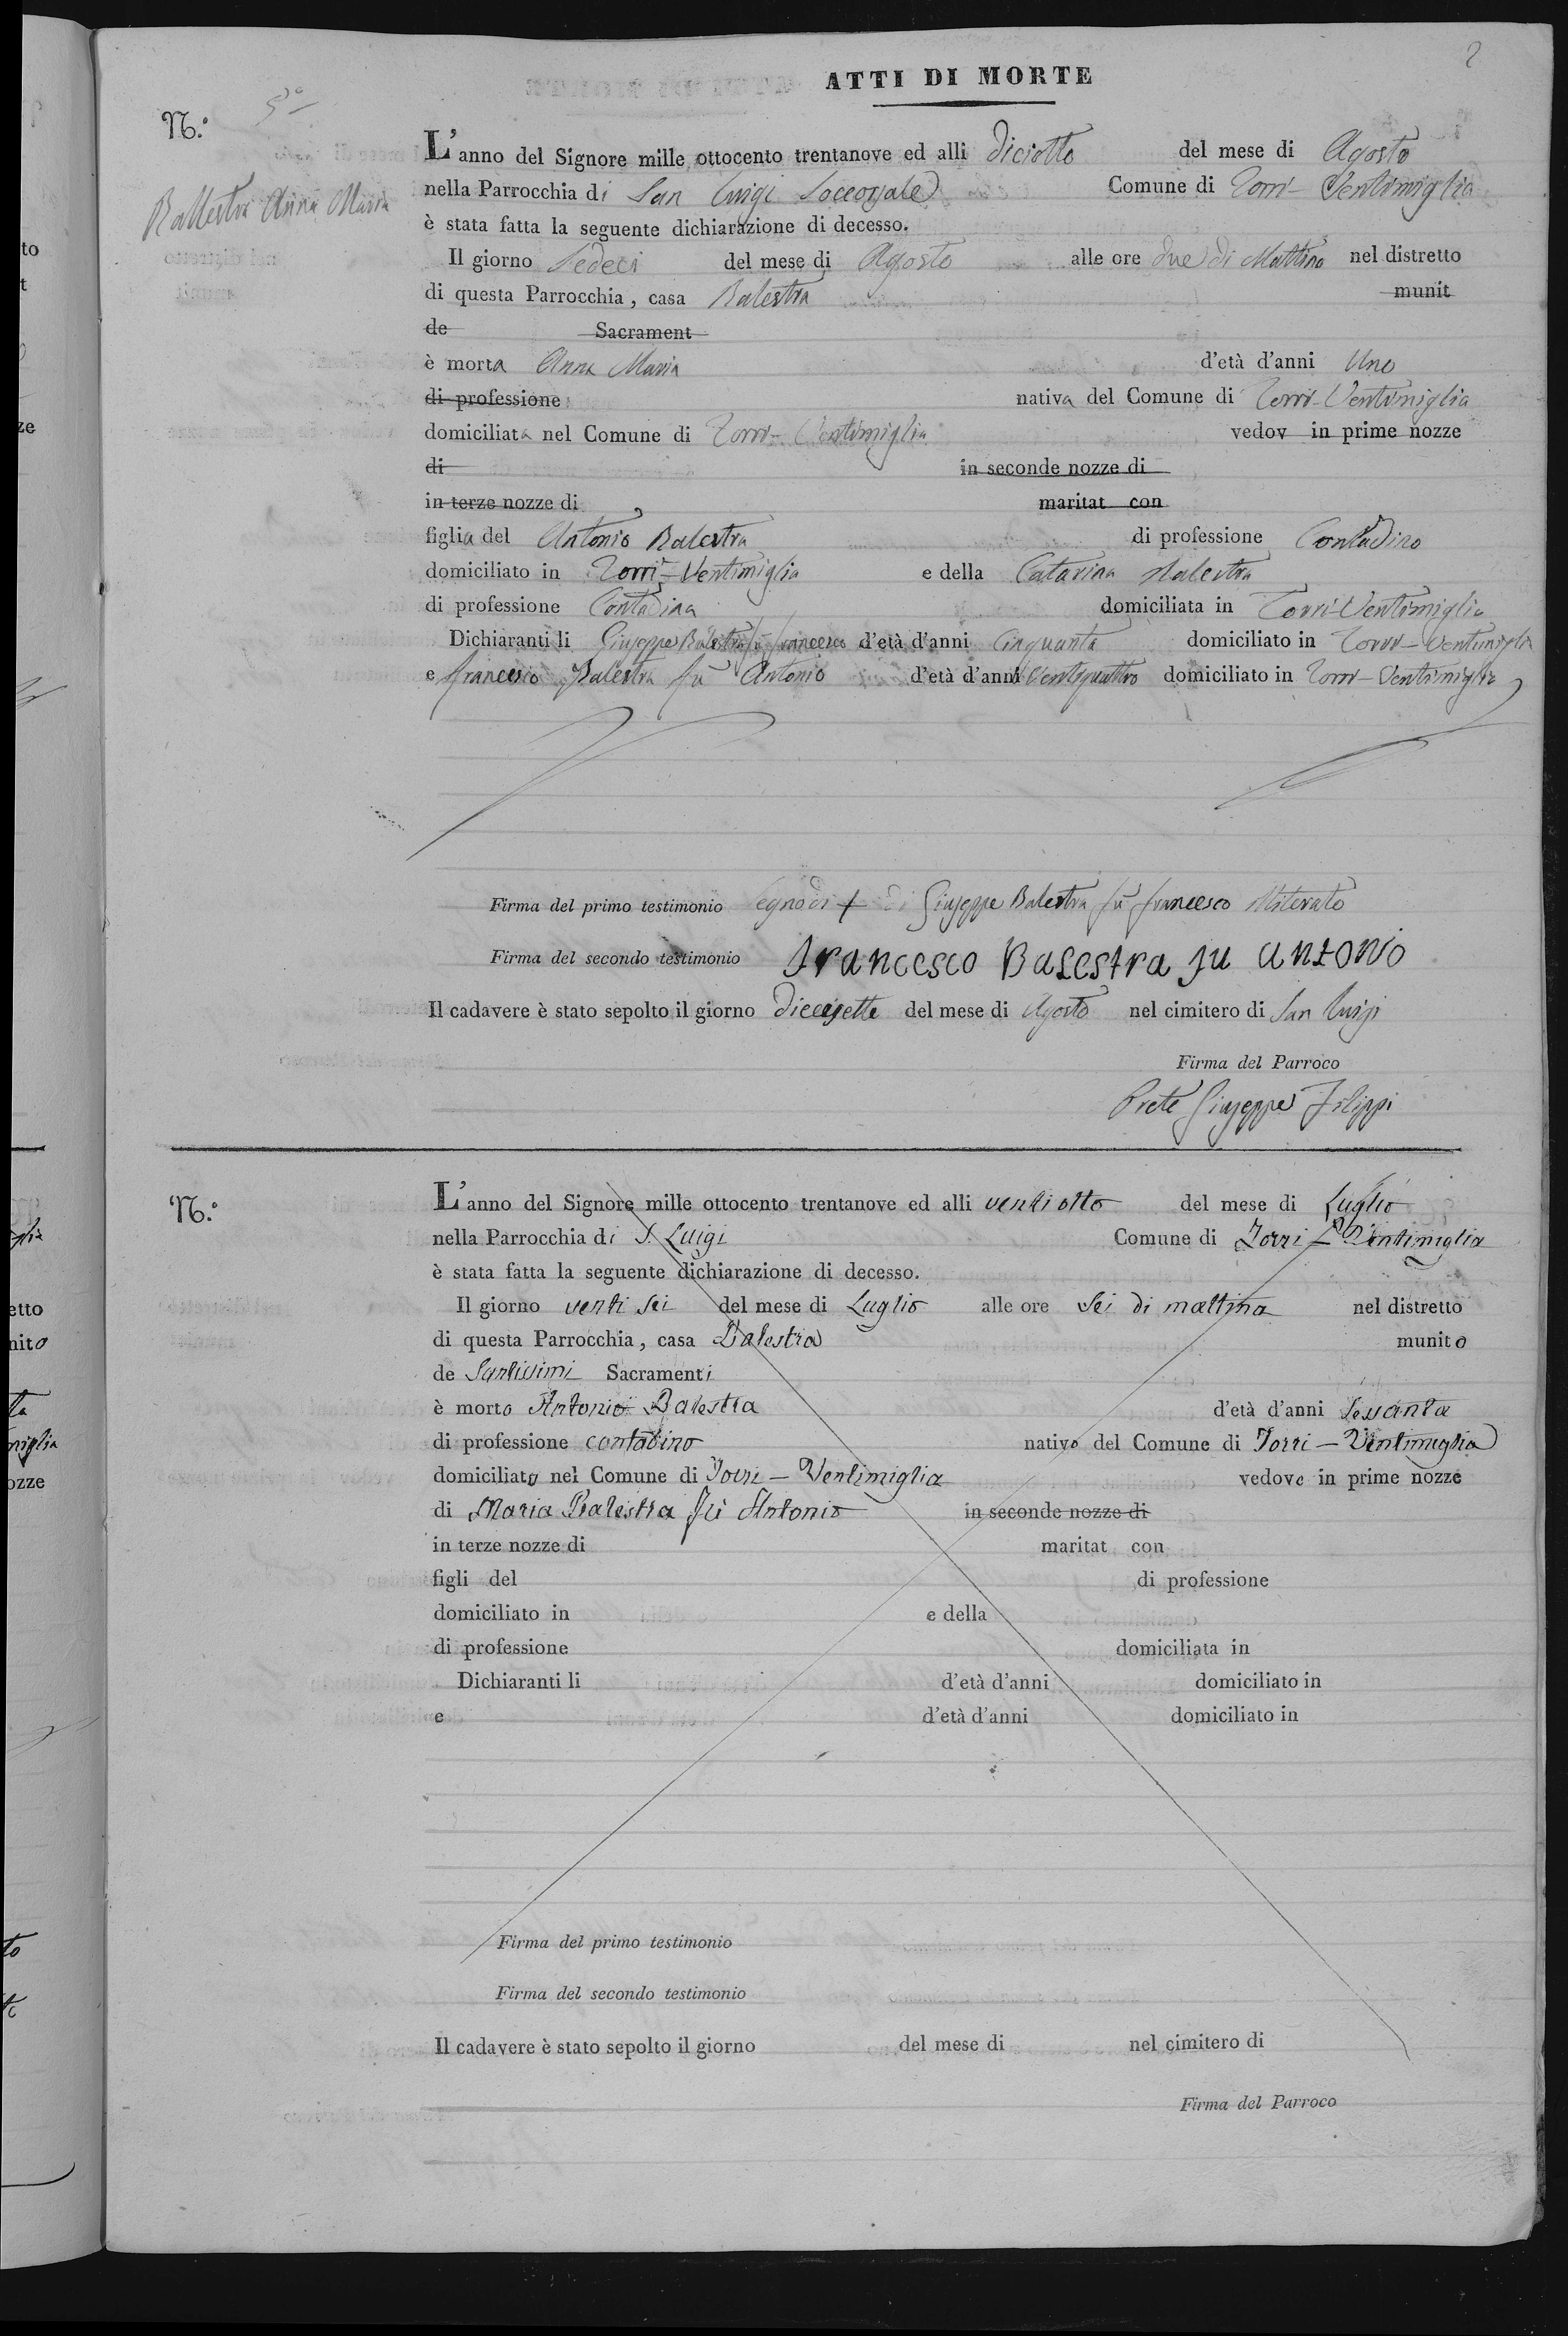 2
ATTI DI MORTE
N.º 3º
Ballestra Anna Maria
L'anno del Signore mille ottocento trentanove ed alli diciotto del mese di Agosto
nella Parrocchia di San Luigi Soccorsale Comune di Torri-Ventimiglia
è stata fatta la seguente dichiarazione di decesso.
Il giorno Sedeci del mese di Agosto alle ore due di Mattina nel distretto
di questa Parrocchia, casa Balestra munit
de Sacrament
è morta Anna Maria d'età d'anni Uno
di professione nativa del Comune di Torri-Ventimiglia
domiciliata nel Comune di Torri-Ventimiglia vedov in prime nozze
di in seconde nozze di
in terze nozze di maritat con
figlia del Antonio Balestra di professione Contadino
domiciliato in Torri-Ventimiglia e della Catarina Balestra
di professione Contadina domiciliata in Torri-Ventimiglia
Dichiaranti li Giuseppe Balestra fù francesco d'età d'anni Cinquanta domiciliato in Torri-Ventimiglia
e francesco Balestra fù Antonio d'età d'anni Ventiquattro domiciliato in Torri-Ventimiglia
Firma del primo testimonio Segno di + di Giuseppe Balestra fù francesco illiterato
Firma del secondo testimonio francesco Balestra fu antonio
Il cadavere è stato sepolto il giorno Diecisette del mese di Agosto nel cimitero di San Luigi
Firma del Parroco
Prete Giuseppe Filippi
N.º
L'anno del Signore mille ottocento trentanove ed alli venti otto del mese di Luglio
nella Parrocchia di S. Luigi Comune di Torri-Ventimiglia
è stata fatta la seguente dichiarazione di decesso.
Il giorno venti sei del mese di Luglio alle ore sei di mattina nel distretto
di questa Parrocchia, casa Balestra munito
de Santissimi Sacramenti
è morto Antonio Balestra d'età d'anni Sessanta
di professione contadino nativo del Comune di Torri-Ventimiglia
domiciliato nel Comune di Torri-Ventimiglia vedovo in prime nozze
di Maria Balestra fù Antonio in seconde nozze di
in terze nozze di maritat con
figli del di professione
domiciliato in e della
di professione domiciliata in
Dichiaranti li d'età d'anni domiciliato in
e d'età d'anni domiciliato in
Firma del primo testimonio
Firma del secondo testimonio
Il cadavere è stato sepolto il giorno del mese di nel cimitero di
Firma del Parroco